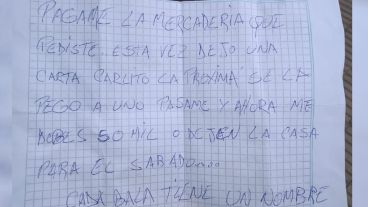 PAGAME LA MERCADERIA QUE
PEDISTE. ESTA VEZ DEJO UNA
CARTA CARLITO LA PROXIMA SE LA
PEGO A UNO PAGAME Y AHORA ME
DEBES 50 MIL O DEJEN LA CASA
PARA EL SABADO....
CADA BALA TIENE UN NOMBRE